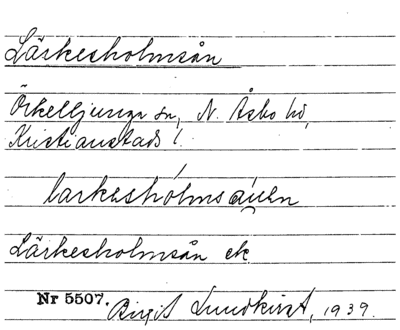 Lärkesholmsån
Örkelljunga sn, N. Åsbo hd,
Kristianstads l.
larkeshólmsåuen
Lärkesholmsån ek
Nr 5507. Birgit Lundkvist, 1939.